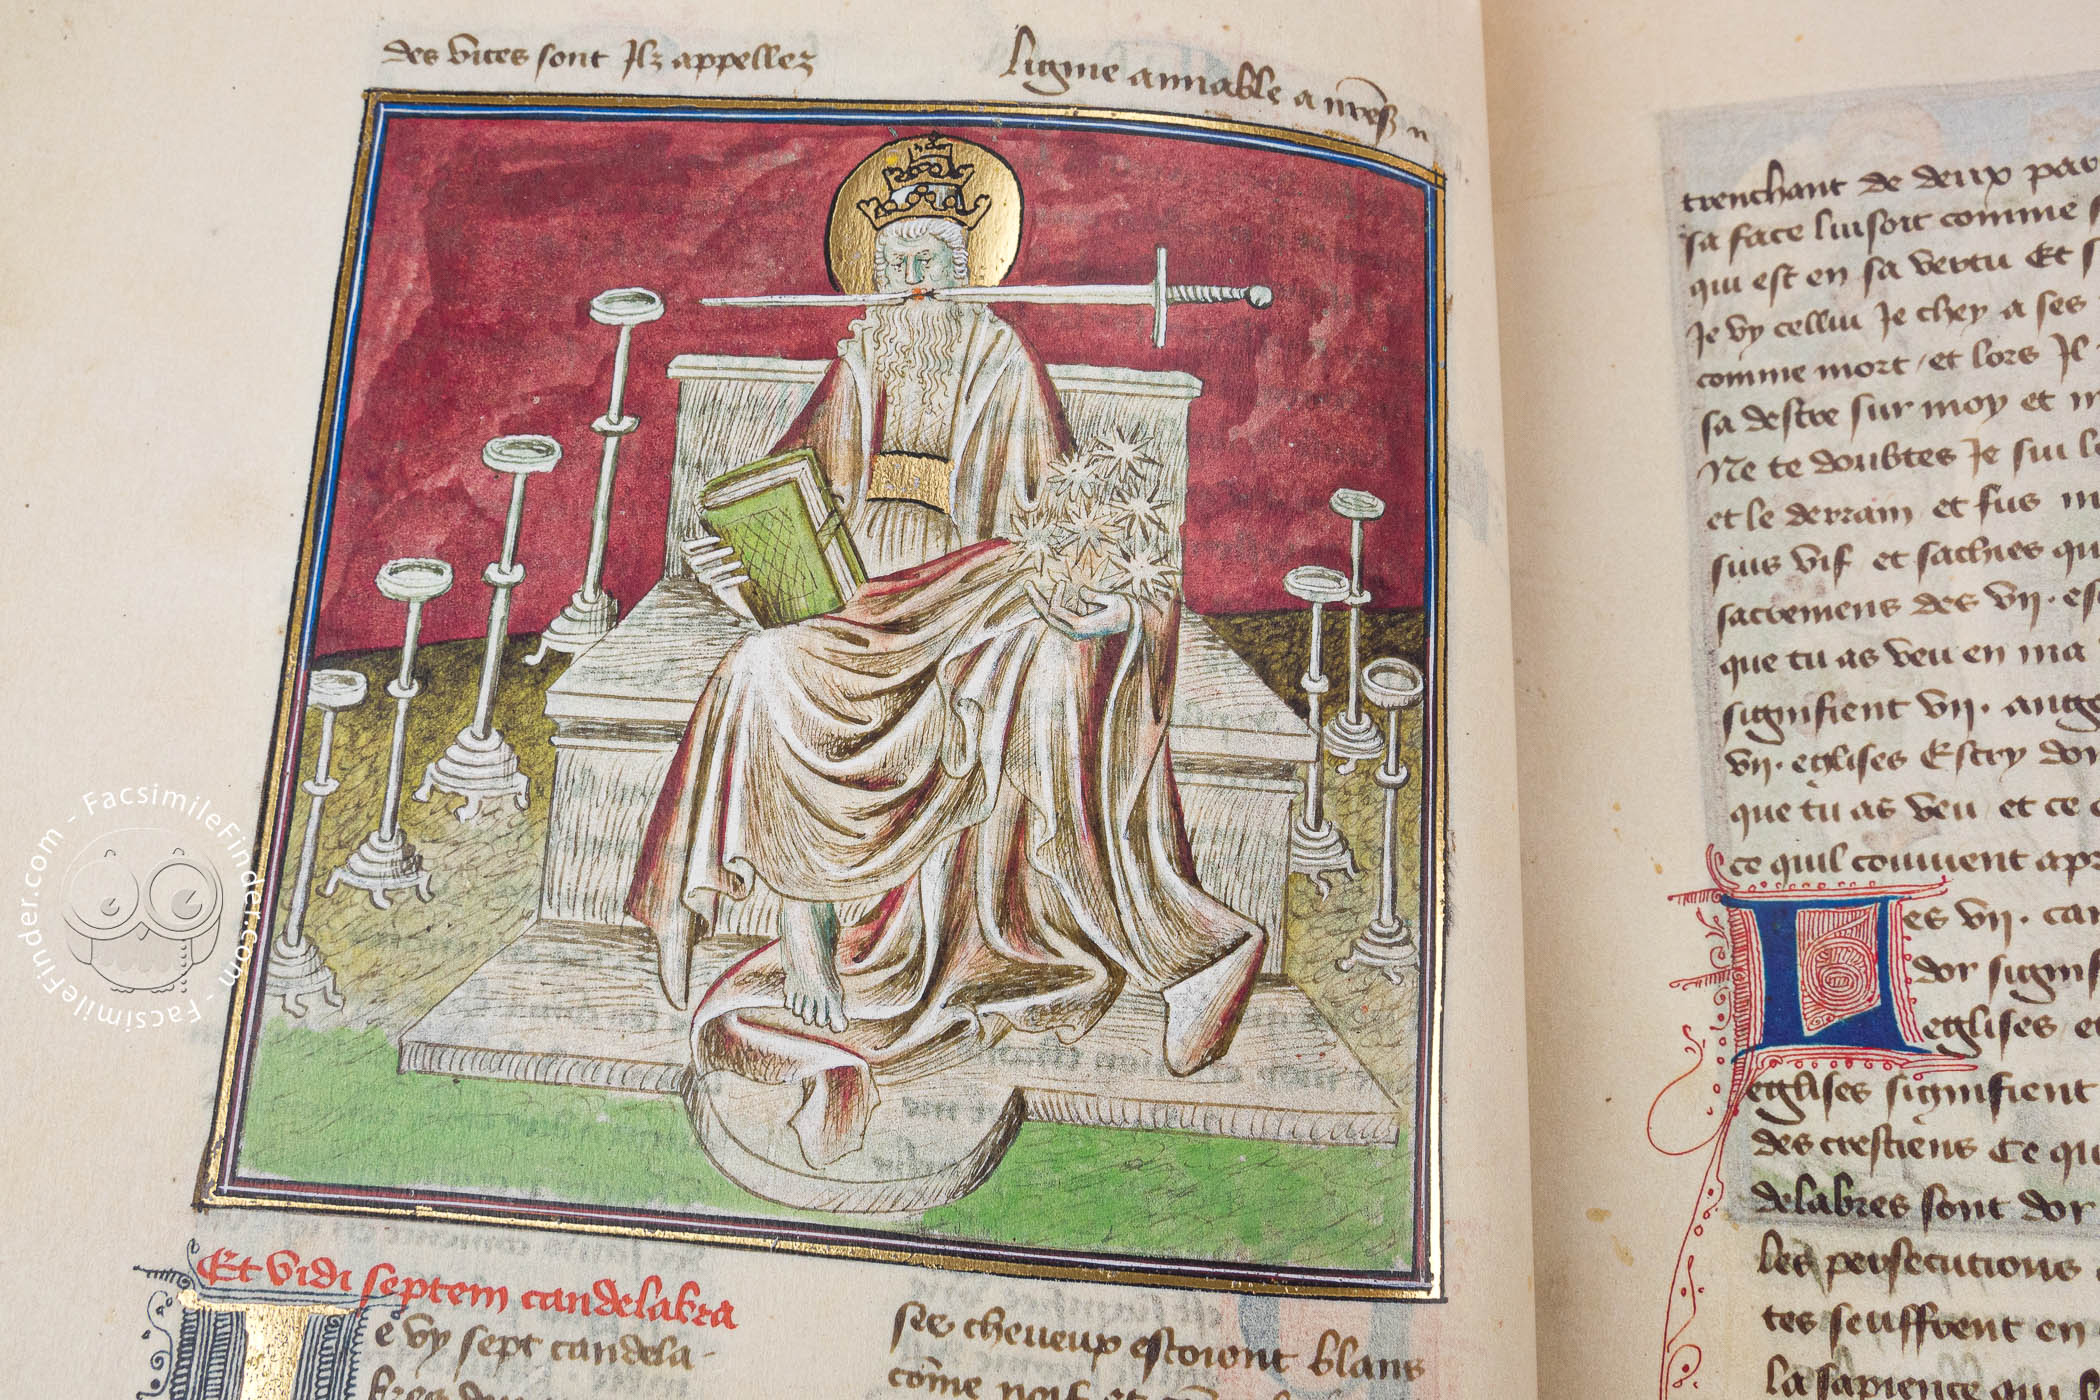 des vices sont Ilz appellez
ligme amiable a
Et vidi septem candelabra
e vy sept candela-
bres
ses cheueux estoient blans
cõme noif et
trenchant de deux par
sa face luisoit comme s
qui est en sa vertu Et
Je vy cellui Je chey a ses
comme mort / et lors Il
sa destre sur moy et m
Ne te doubtes Je sui le
et le derrain et fus m
suis vif et saches qu
sacremens des vij. es
que tu as veu en ma
signifient vij. ange
vij. eglises Escry don
que tu as veu et ce
ce quil conuient apr
Les vij. can
dor signif
eglises e
eglises signifient
des crestiens Ce qu
delabres sont dor
les persecutions
tes seuffrent en
la sapience qui
FacsimileFinder.com - FacsimileFinder.com -